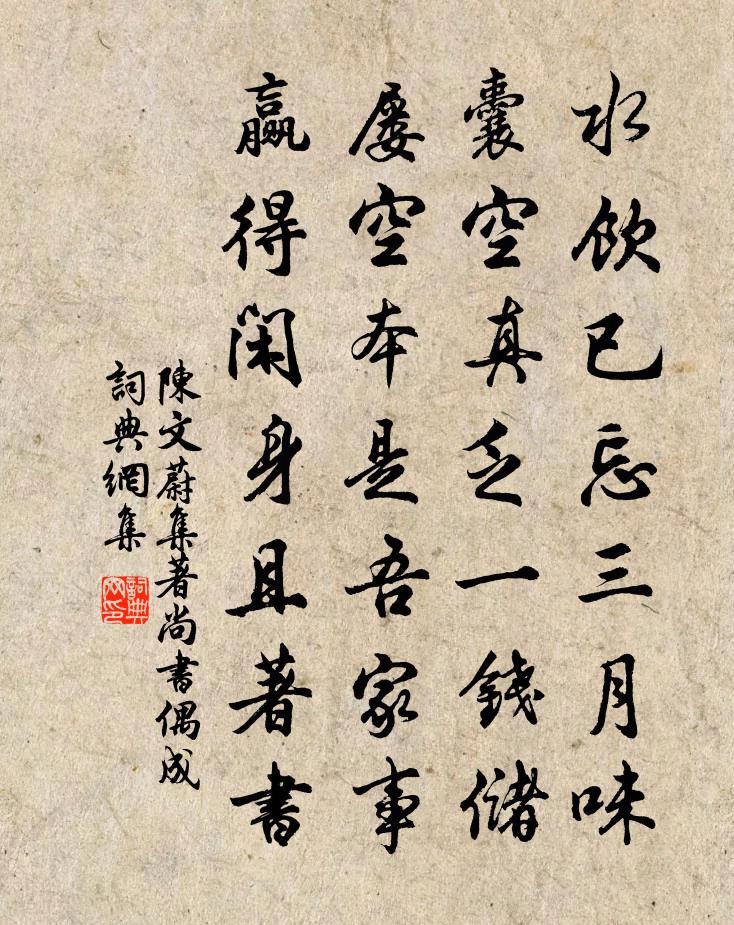 水飲已忘三月味
囊空真乏一錢儲
屡空本是吾家事
贏得閑身且著書
陳文蔚集著尚書偶成
詞典網集
詞典网印